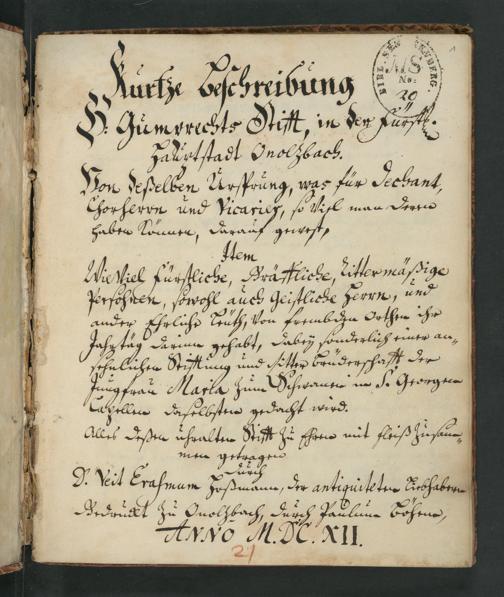 Kurtze Beschreibung
S: Gumprechts Stifft, in der Fürstl:
Haubtstadt Onolzbach.
Von deßelben Ursprung, was für Dechant,
Chorherrn und Vicarier, so viel man deren
haben können, darauf gewest,
Item
Wie viel Fürstliche, Gräffliche, Rittermäßige
Persohnen, sowohl auch Geistliche Herrn, und
ander Ehrliche Leüth, von frembden Orthen ihr
Jahrtäg darinn gehabt, dabey sonderlich einer an-
sehnlichen Stifftung und Ritter Brüderschafft der
Jungfrau Maria zum Schwanen in S. Georgen
Capellen daselbsten gedacht wird.
Alles deßen uhralten Stifft zu Ehren mit fleiß zusam-
men getragen
durch
D. Veit Erasmum Hoßmann, der antiquiteten Liebhabern
Gedruckt zu Onolzbach, durch Paulum Böhem,
ANNO M.DC.XII.
21
BIBL. SENCKENBERG.
MS
No:
20
1